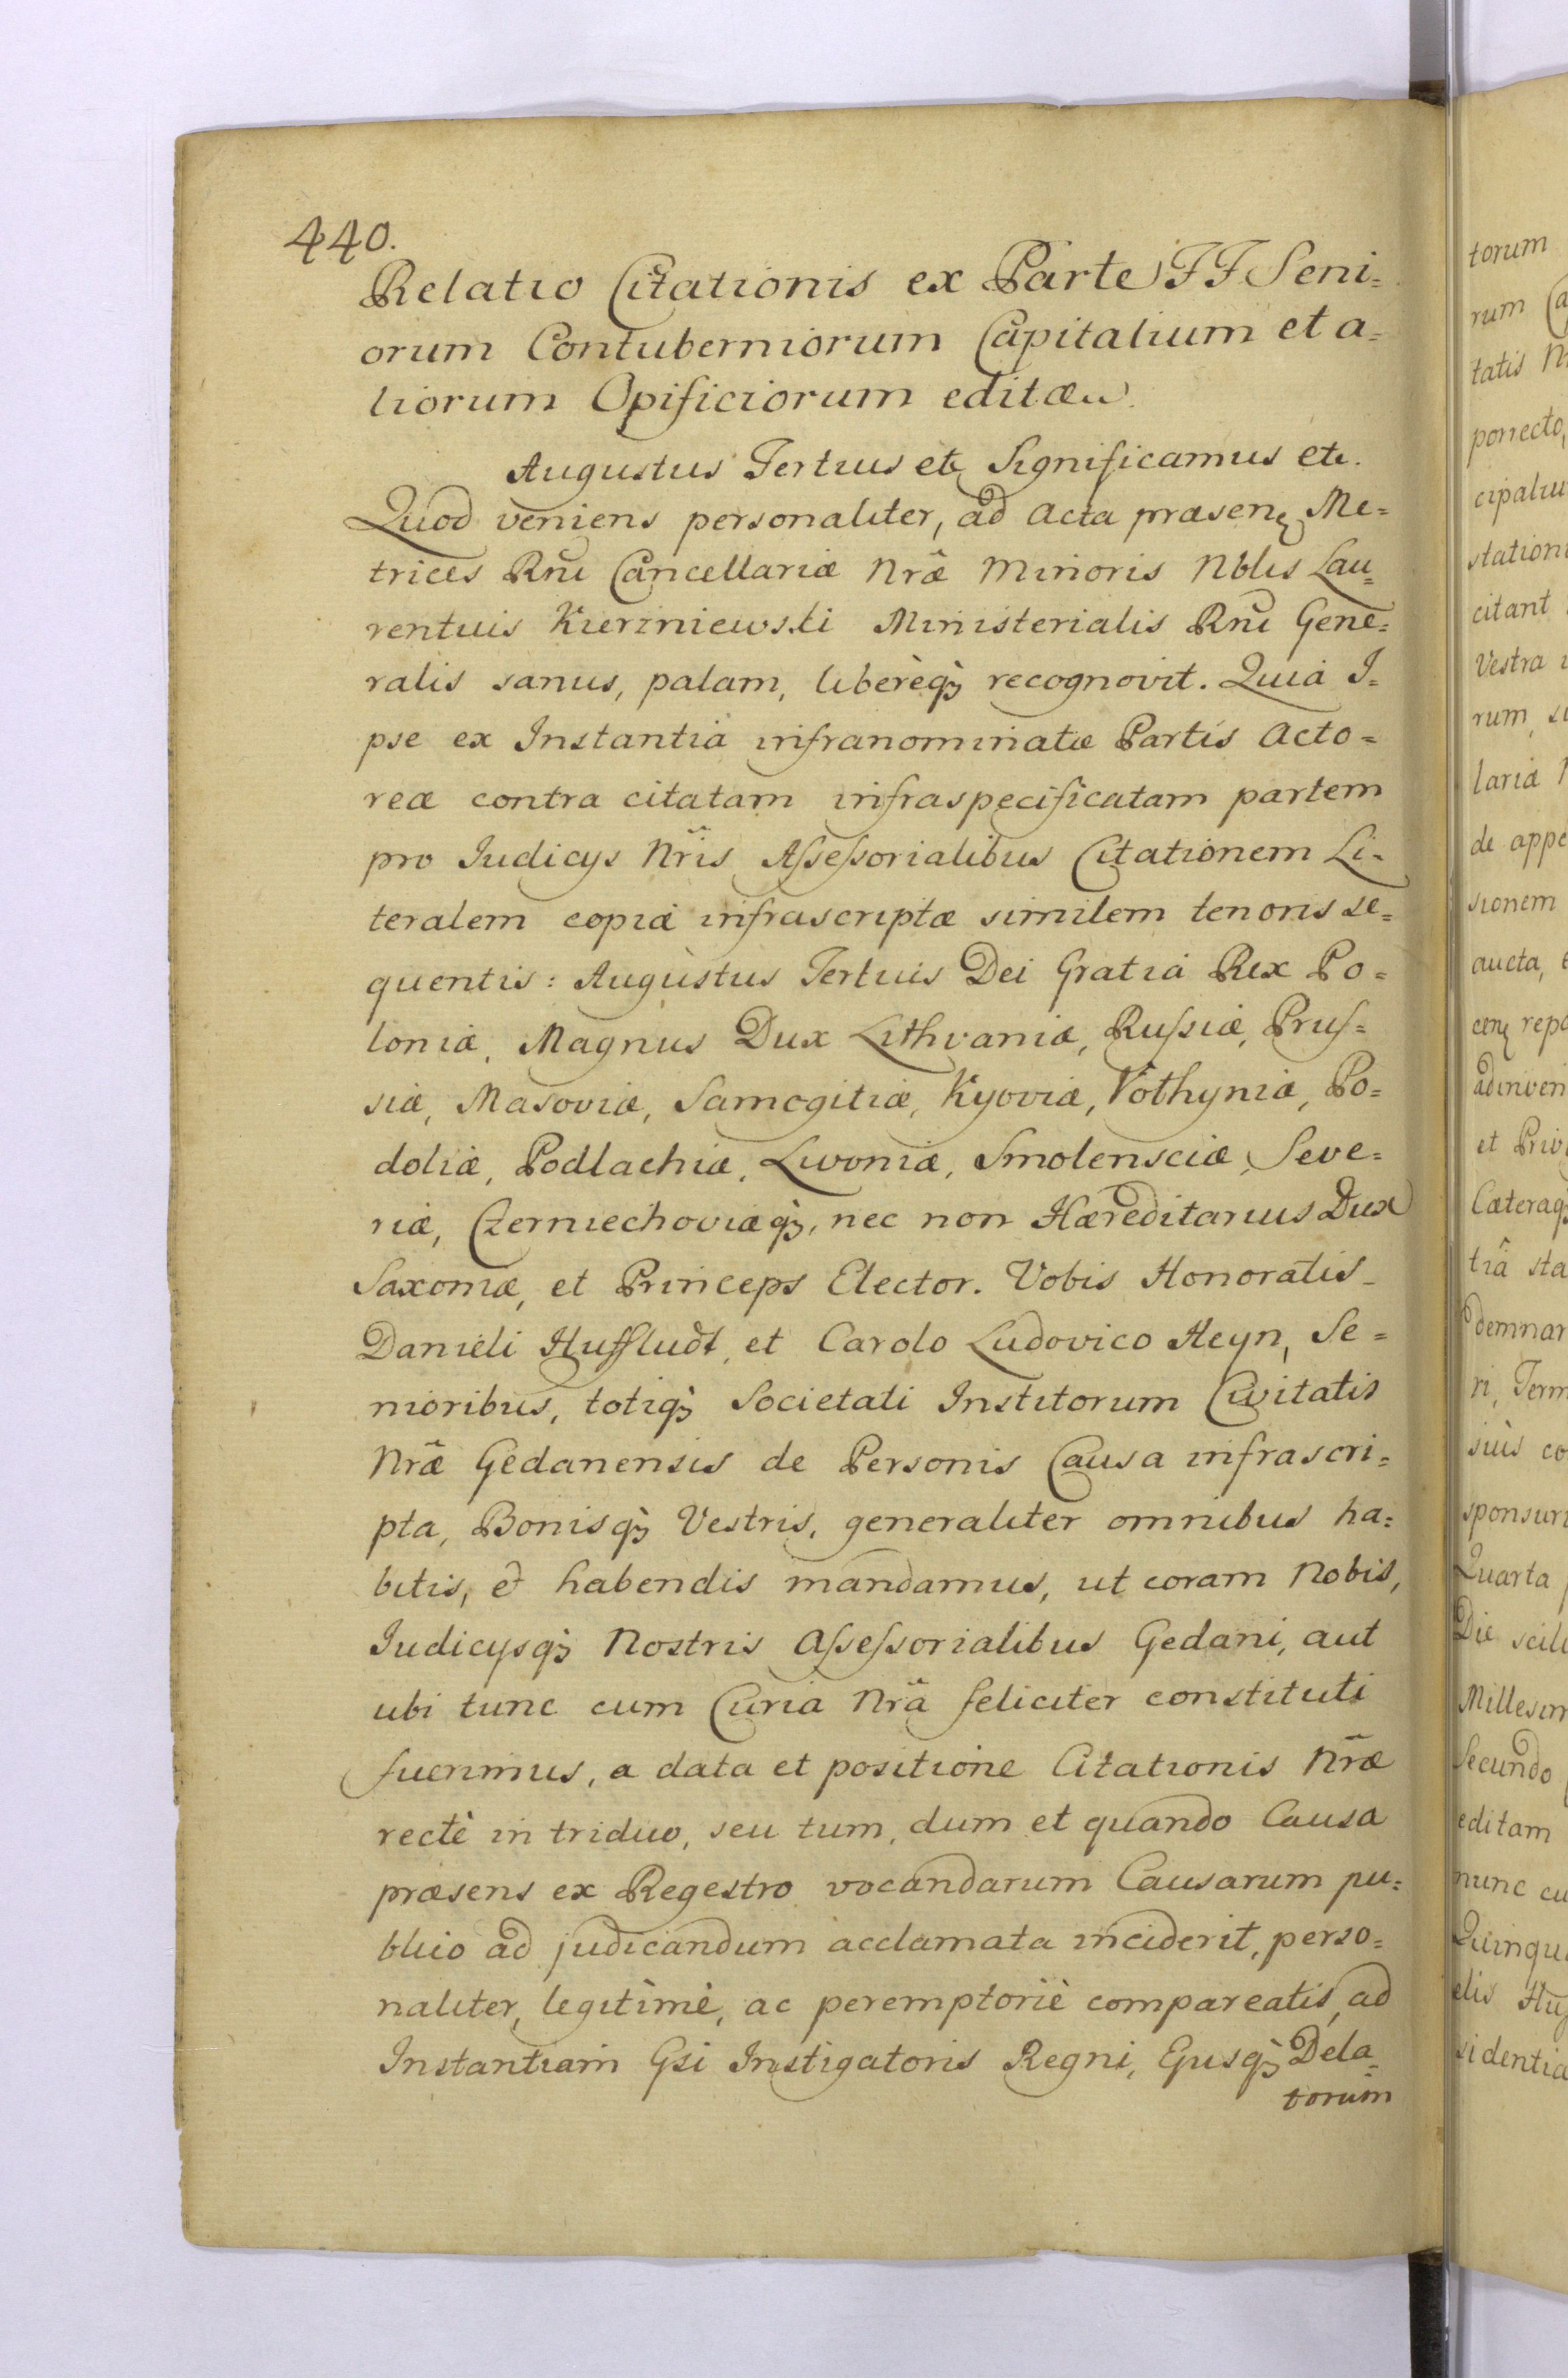 440.
Relatio Citationis ex Parte FF Seni=
orum Contuberniorum Capitalium et a=
liorum Opificiorum editæ
Augustus Tertius etc Significamus etc.
Quod veniens personaliter, ad Acta præsen Me=
trices Rnĩ Cancellariæ Nræ̃ Minoris Nblis Lau=
rentius Kierzniewski Ministerialis Rnĩ Gene=
ralis sanus, palam, liberèq₃ recognovit. Quia I=
pse ex Instantia infranominatæ Partis Acto=
reæ contra citatam infraspecificatam partem
pro Iudicys Nrĩs Aſseſsorialibus Citationem Li=
teralem copiæ infrascriptæ similem tenoris se=
quentis: Augustus Tertius Dei Gratia Rex Po=
loniæ, Magnus Dux Lithvaniæ, Ruſsiæ, Pruſ=
siæ, Masoviæ, Samogitiæ, Kyoviæ, Volhyniæ, Po=
doliæ, Podlachiæ, Livoniæ, Smolensciæ, Seve=
riæ, Czerniechoviæq₃, nec non Hæreditarius Dux
Saxoniæ, et Princeps Elector. Vobis Honoratis
Danieli Huffludt, et Carolo Ludovico Heyn, Se=
nioribus, totiq₃ Societati Institorum Civitatis
Nræ̃ Gedanensis de Personis Causa infrascri=
pta, Bonisq₃ Vestris, generaliter omnibus ha=
bitis, & habendis mandamus, ut coram Nobis,
Iudicysq₃ Nostris Aſseſsorialibus Gedani, aut
ubi tunc cum Curia Nrã feliciter constituti
fuerimus, a data et positione Citationis Nræ̃
rectè in triduo, seu tum, dum et quando Causa
præsens ex Regestro vocandarum Causarum pu=
blico ad judicandum acclamata inciderit, perso=
naliter, legitimè, ac peremptoriè compareatis, ad
Instantiam Gsi Instigatoris Regni, Ejusq₃ Dela=
torum
torum
rum
tatis
porrecto,
cipaliu
station
citant
Vestra
rum,
laria
de appe
sionem
aucta,
repo
adinven
et Priv
Cæteraq₃
tiâ sta
demnar
ri, Term
suis co
sponsuri
Quarta
Die scili
Millesim
Secundo
editam
nunc cu
Quinqu
elis Huf
sidentia